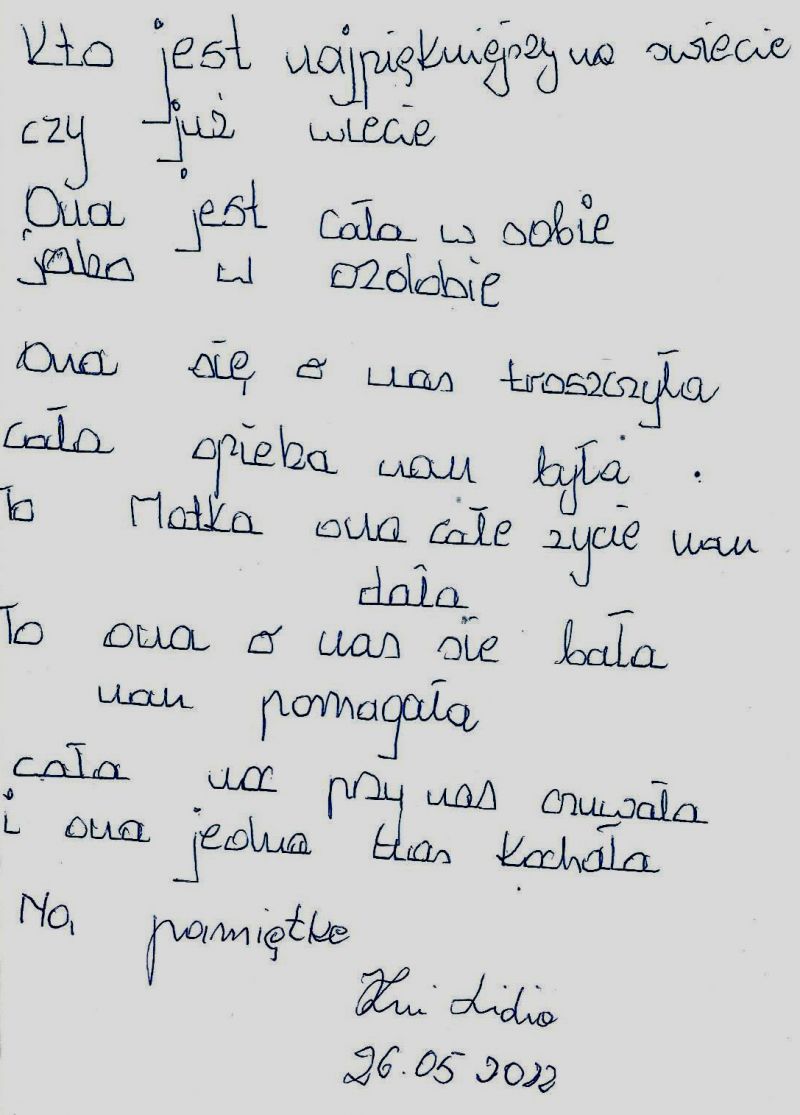 Kto jest najpiękniejszy na swiecie
czy już wiecie
Ona jest cała w sobie
jako w ozdobie
Ona się o nas troszczyła
cała opieka nam była.
To Matka ona całe zycie nam
dała
To ona o nas sie bała
nam pomagała
cała przy nas czuwała
i ona jedna nas kochała
Na pamiętke
Lidia
26.05 2022